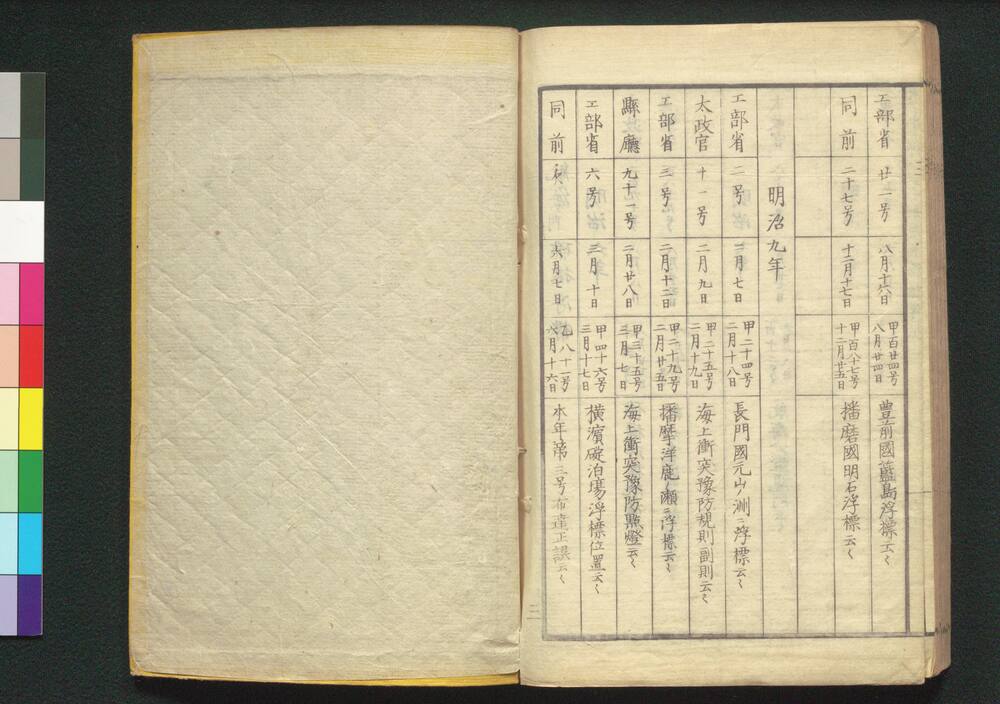 工部省 廿一号 八月十六日 甲百廿四号 八月廿四日 豊前國藍島浮標云〻
同前 二十七号 十二月十七日 甲百八十七号 十二月廿五日 播磨國明石浮標云〻
明治九年
工部省 二号 二月七日 甲二十四号 二月十八日 長門國元山ノ洲ニ浮標云〻
太政官 十一号 二月九日 甲二十五号 二月十九日 海上衝突豫防規則副則云〻
工部省 三号 二月十二日 甲二十九号 二月廿五日 播摩洋鹿ノ瀬ニ浮標云〻
縣廳 九十一号 二月廿八日 甲三十五号 三月七日 海上衝突豫防點燈云〻
工部省 六号 三月十日 甲四十六号 三月十七日 横濱碇泊場浮標位置云〻
同前 六月七日 乙八十一号 六月十六日 本年第三号布達正誤云〻
二